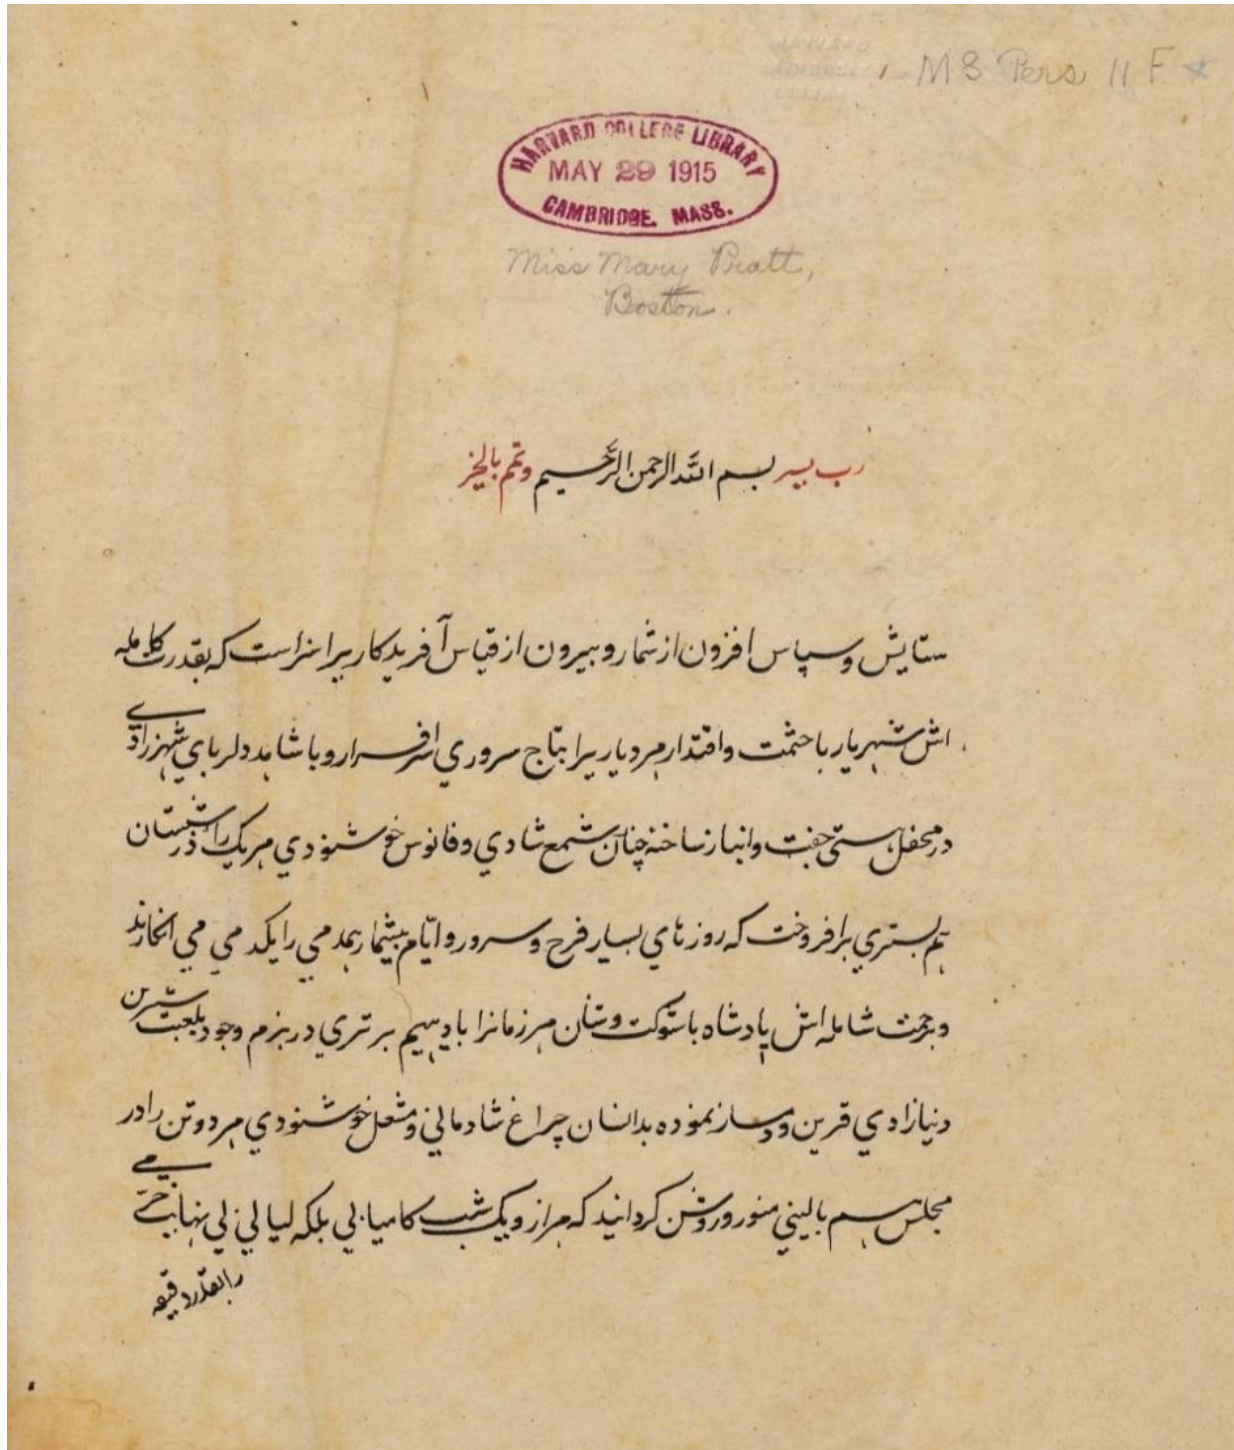 MS Pers 11 F *
HARVARD COLLEGE LIBRARY
MAY 29 1915
CAMBRIDGE, MASS.
Miss Mary Pratt,
Boston.
رب یسر بسم الله الرحمن الرحیم وتمم بالخیر
ستایش و سپاس افزون از شمار و بیرون از قیاس آفریدکاریرا سزاست که بقدرت کامله
اش شهریار باحشمت واقتدار هر دیاریرا بتاج سروري سرافراز و با شاهد دلرباي شهرزادي
در محفل هستي جفت وانباز ساخته چنان شمع شادي و فانوس خوشنودي هر یک را در شبستان
هم بستري برافروخت که روزهاي بسیار فرح و سرور و ایّام بیشمار همدمي را یکدمي مي انکارند
و برحمت شامله اش پادشاه باشوکت وشان هر زمانرا بادیهیم برتري در بزم وجود بلعبت شیرین
دنیازادي قرین و دمساز نموده بدانسان چراغ شادماني و مشعل خوشنودي هر دو تن را در
مجلس هم باليني منور و روشن کردانید که هزار و یک شب کامیابي بلکه لیالي بي نهایت خرمي
را بقدر دقیقه